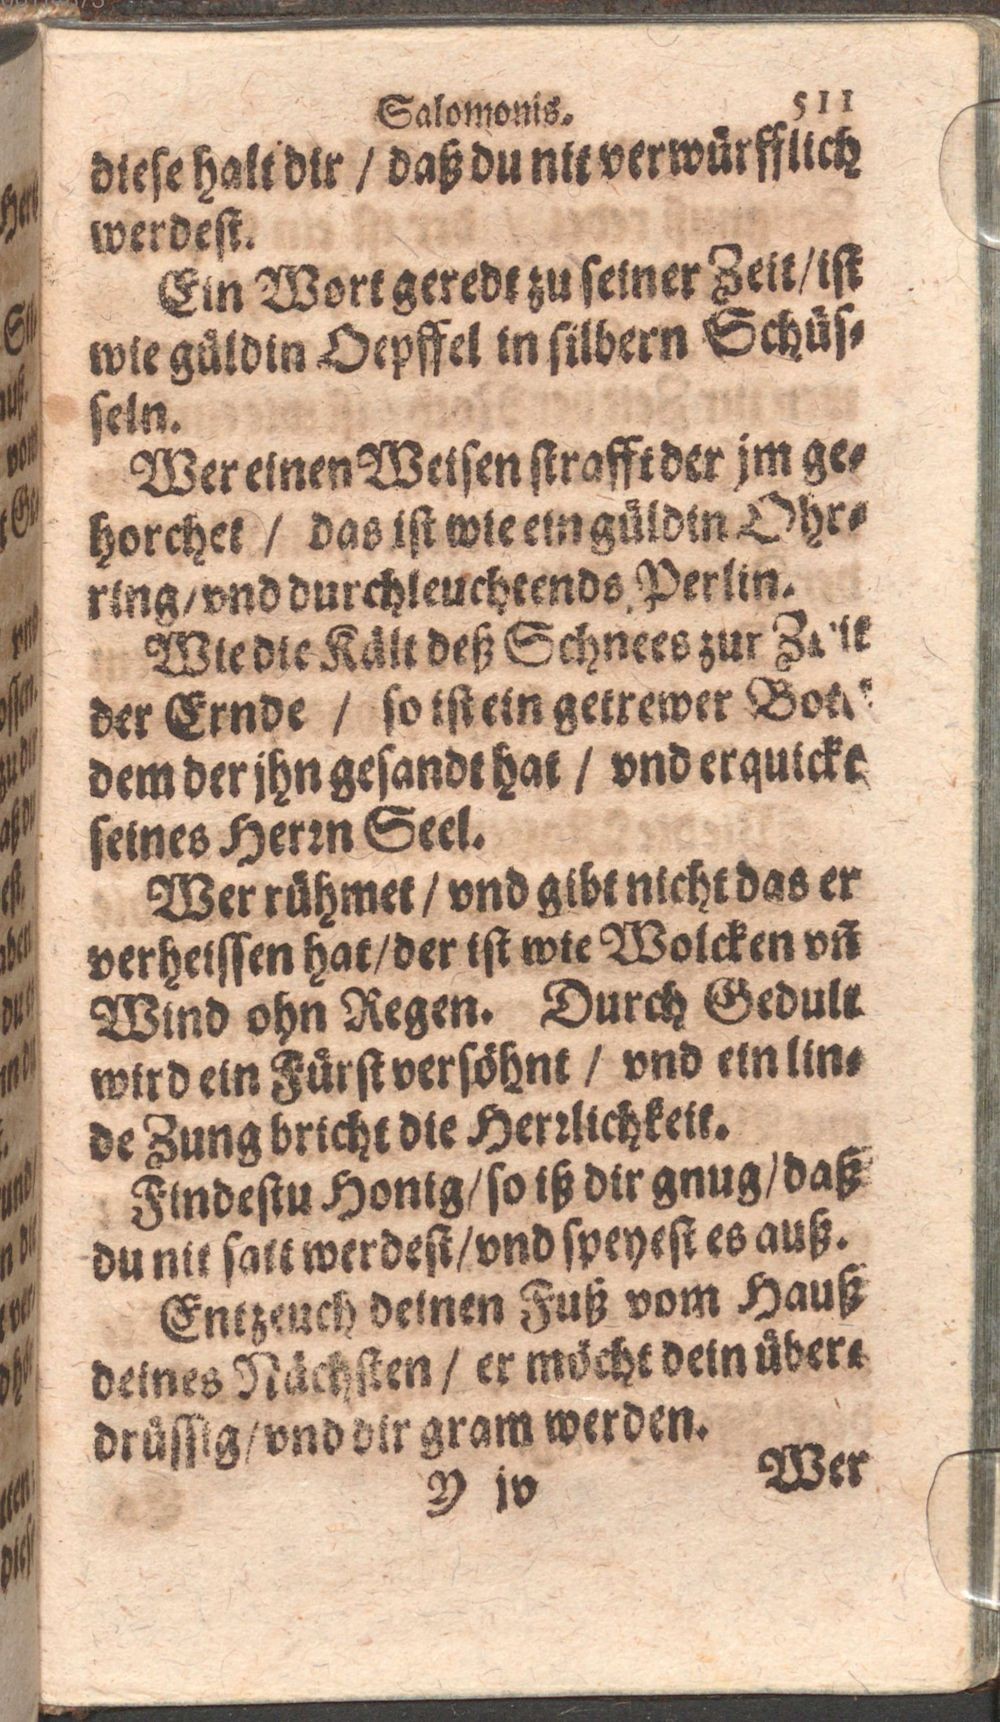 Salomonis. 511
diese halt dir / daß du nit verwürfflich
werdest.
Ein Wort geredt zu seiner Zeit / ist
wie güldin Oepffel in silbern Schüs-
seln.
Wer einen Weisen strafft der jm ge-
horchet / das ist wie ein güldin Ohr-
ring / vnd durchleuchtends Perlin.
Wie die Kält deß Schnees zur Zeit
der Ernde / so ist ein getrewer Bott
dem der jhn gesandt hat / vnd erquickt
seines Herrn Seel.
Wer rühmet / vnd gibt nicht das er
verheissen hat / der ist wie Wolcken vñ
Wind ohn Regen. Durch Gedult
wird ein Fürst versöhnt / vnd ein lin-
de Zung bricht die Herrlichkeit.
Findestu Honig / so iß dir gnug / daß
du nit satt werdest / vnd speyest es auß.
Entzeuch deinen Fuß vom Hauß
deines Nächsten / er möcht dein über-
drüssig / vnd dir gram werden.
Y jv Wer